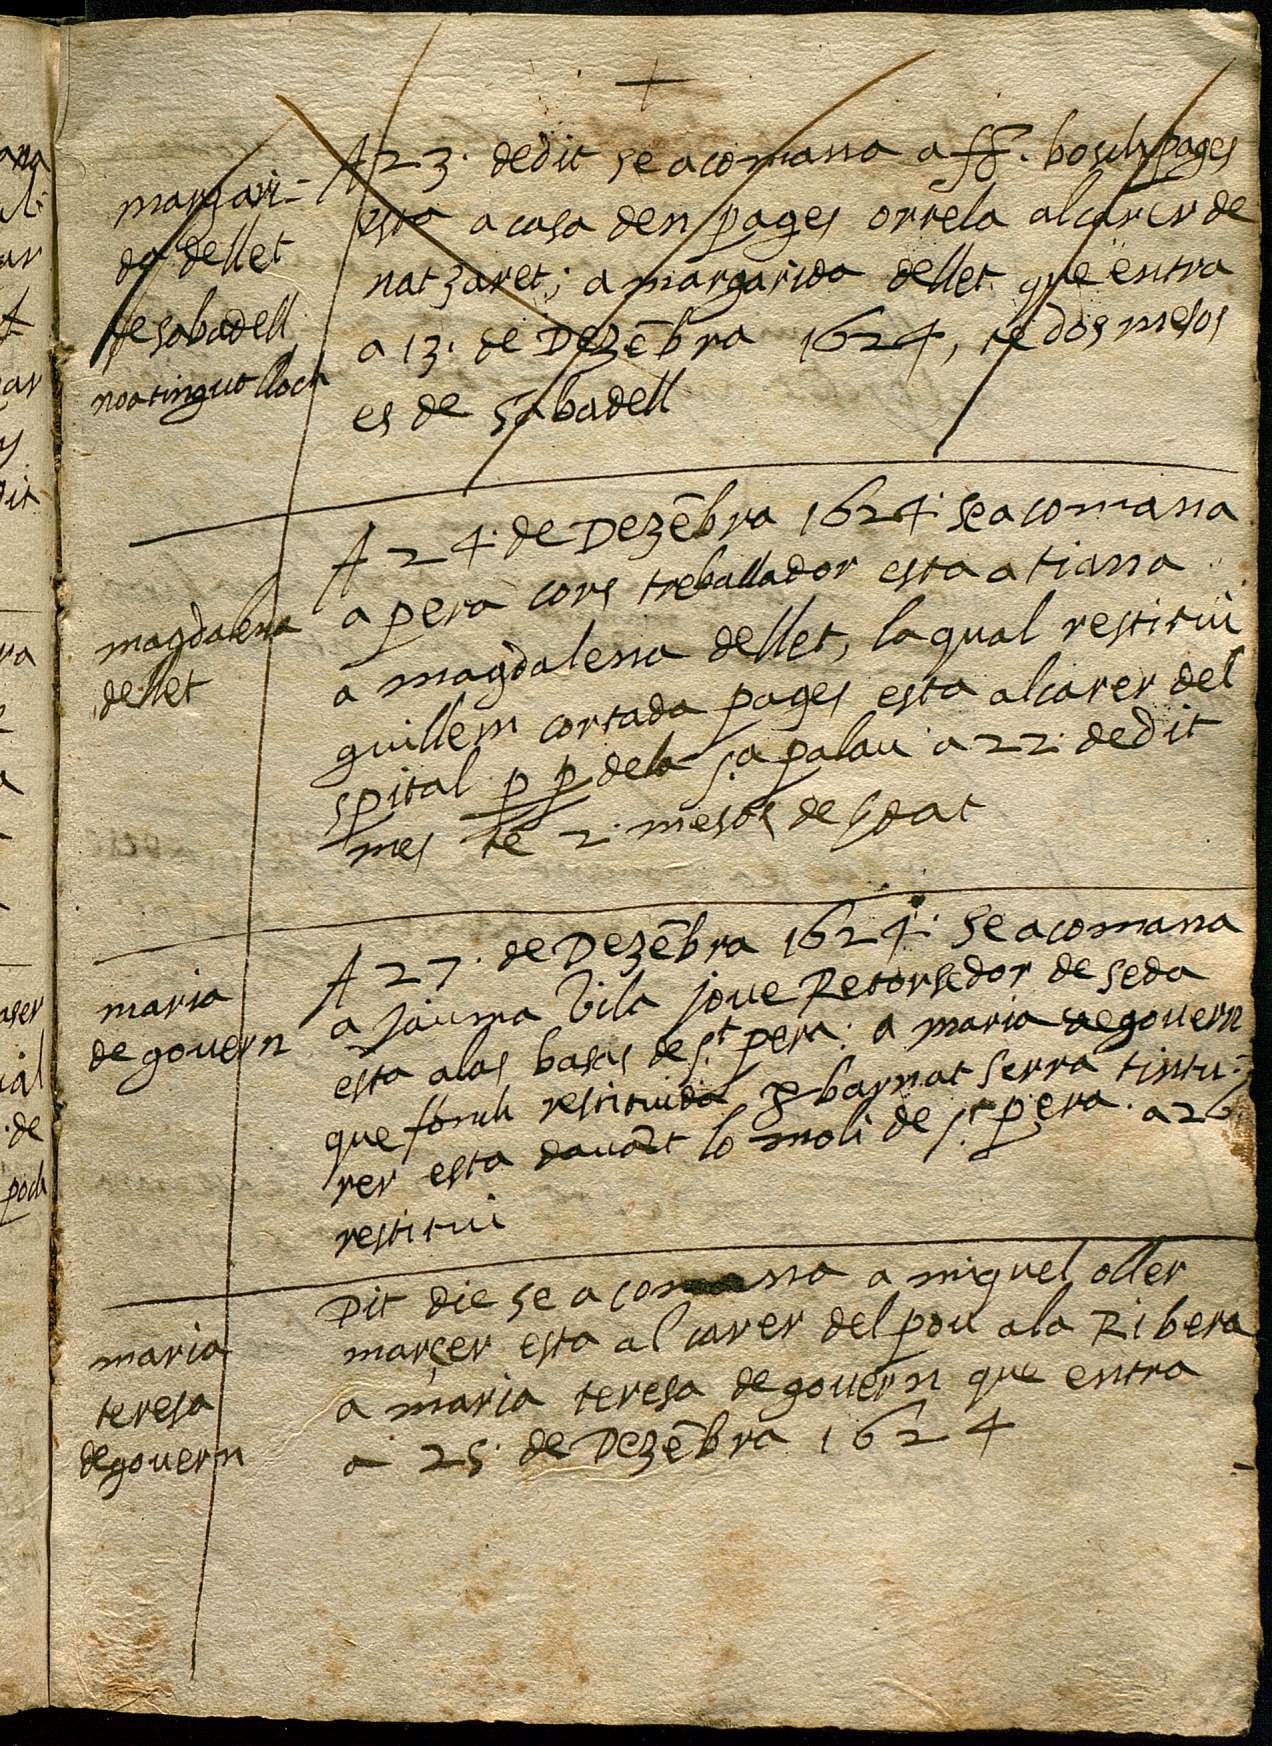 margari-
da dellet
de sabadell
no a tingut lloch
A 23. de dit se acomana a ff. bosch pages
esta a casa den pages orrela al carer de
natzaret; a margarida dellet que entra
a 13. de Dezēbra 1624, te dos mesos
es de sabadell
magdalena
dellet
A 24. de Dezēbra 1624. se acomana
a pera cors treballador esta a tiana
a magdalena dellet, la qual restitui
guillem cortada pages esta al carer del
spital p p de la s.a palau a 22. de dit
mes te 2. mesos de edat
maria
de govern
A 27. de Dezēbra 1624. se acomana
a Jauma Vila jove Retorsedor de seda
esta a las basas de s.t pera. a maria de govern
que fonch restituida p barnat serra tintu-
rer esta davāt lo moli de s.t pera. a 26
restitui
maria
teresa
de govern
Dit die se acomana a miquel oller
marçer esta al carer del pou a la Ribera
a maria teresa de govern que entra
a 25. de Dezēbra 1624